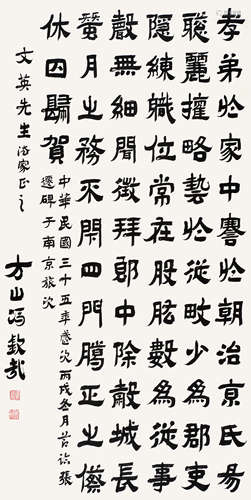 孝弟於家中謇於朝治京氏易
聰麗權略藝於從畋少為郡吏
隱練職位常在股肱數為從事
聲無細聞徵拜郎中除穀城長
蠶月之務不閉四門臘正之僚
休囚歸賀
中華民國三十五年歲次丙戌叁月節臨張
遷碑于南京旅次
文英先生法家正之
方山馮欽哉